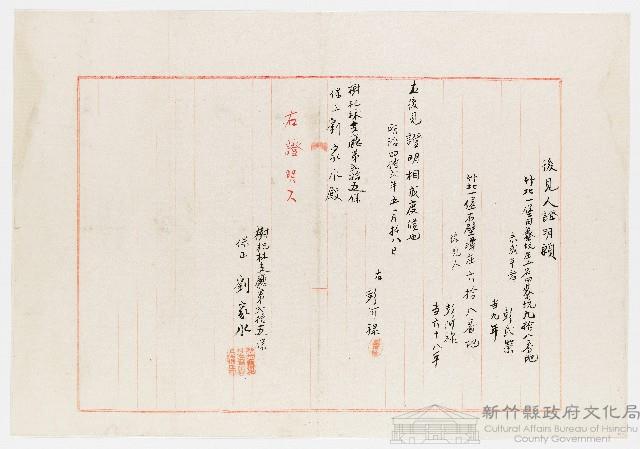 後見人證明願
竹北一堡田藔坑庄土名田藔坑九拾八番地
未成年者
彭民繁
當九年
竹北一堡石壁潭庄六拾八番地
後見人
彭阿祿
當六十八年
右後見證明相成度候也
明治四拾六年五月拾八日
右 彭阿祿
樹杞林支廳第六拾五保
保正劉家水殿
右證明ス
樹杞林支廳第六拾五保
保正 劉家水
新竹縣政府文化局
Cultural Affairs Bureau of Hsinchu
County Government